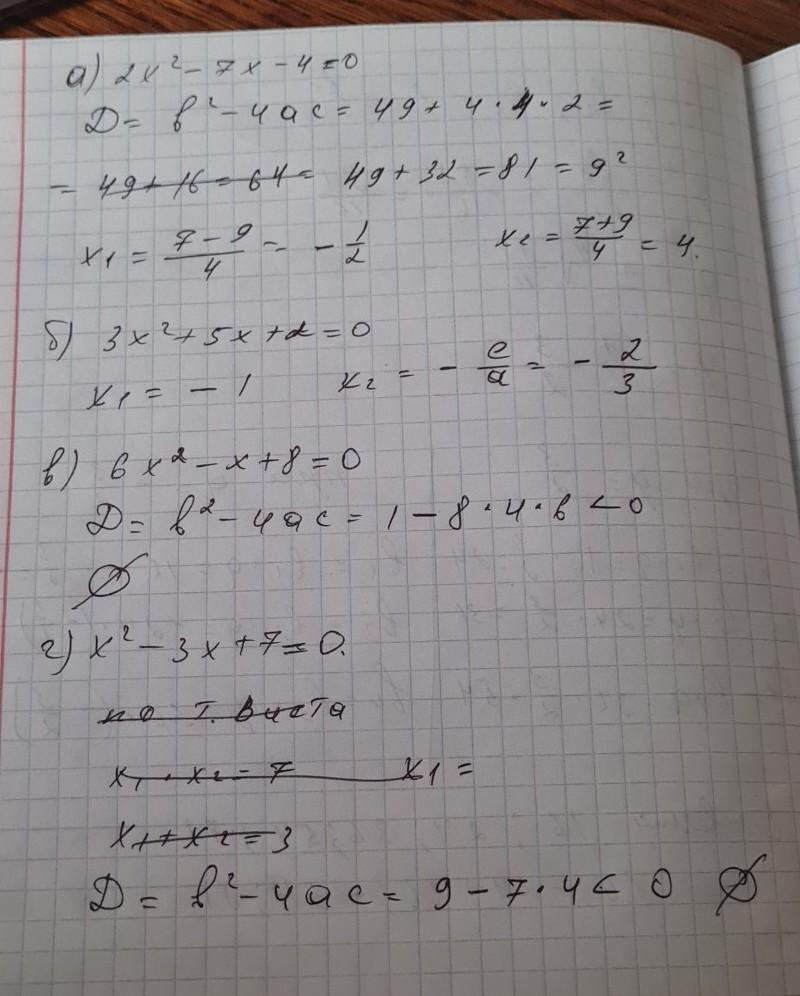 а) 2x² - 7x - 4 = 0
D = b² - 4ac = 49 + 4 · 4 · 2 =
= 49 + 16 = 64 = 49 + 32 = 81 = 9²
x₁ = (7 - 9)/4 = - 1/2 x₂ = (7 + 9)/4 = 4.
б) 3x² + 5x + 2 = 0
x₁ = - 1 x₂ = - c/a = - 2/3
в) 6x² - x + 8 = 0
D = b² - 4ac = 1 - 8 · 4 · 6 < 0
∅
г) x² - 3x + 7 = 0.
по т. Виета
x₁ · x₂ = 7 x₁ =
x₁ + x₂ = 3
D = b² - 4ac = 9 - 7 · 4 < 0 ∅